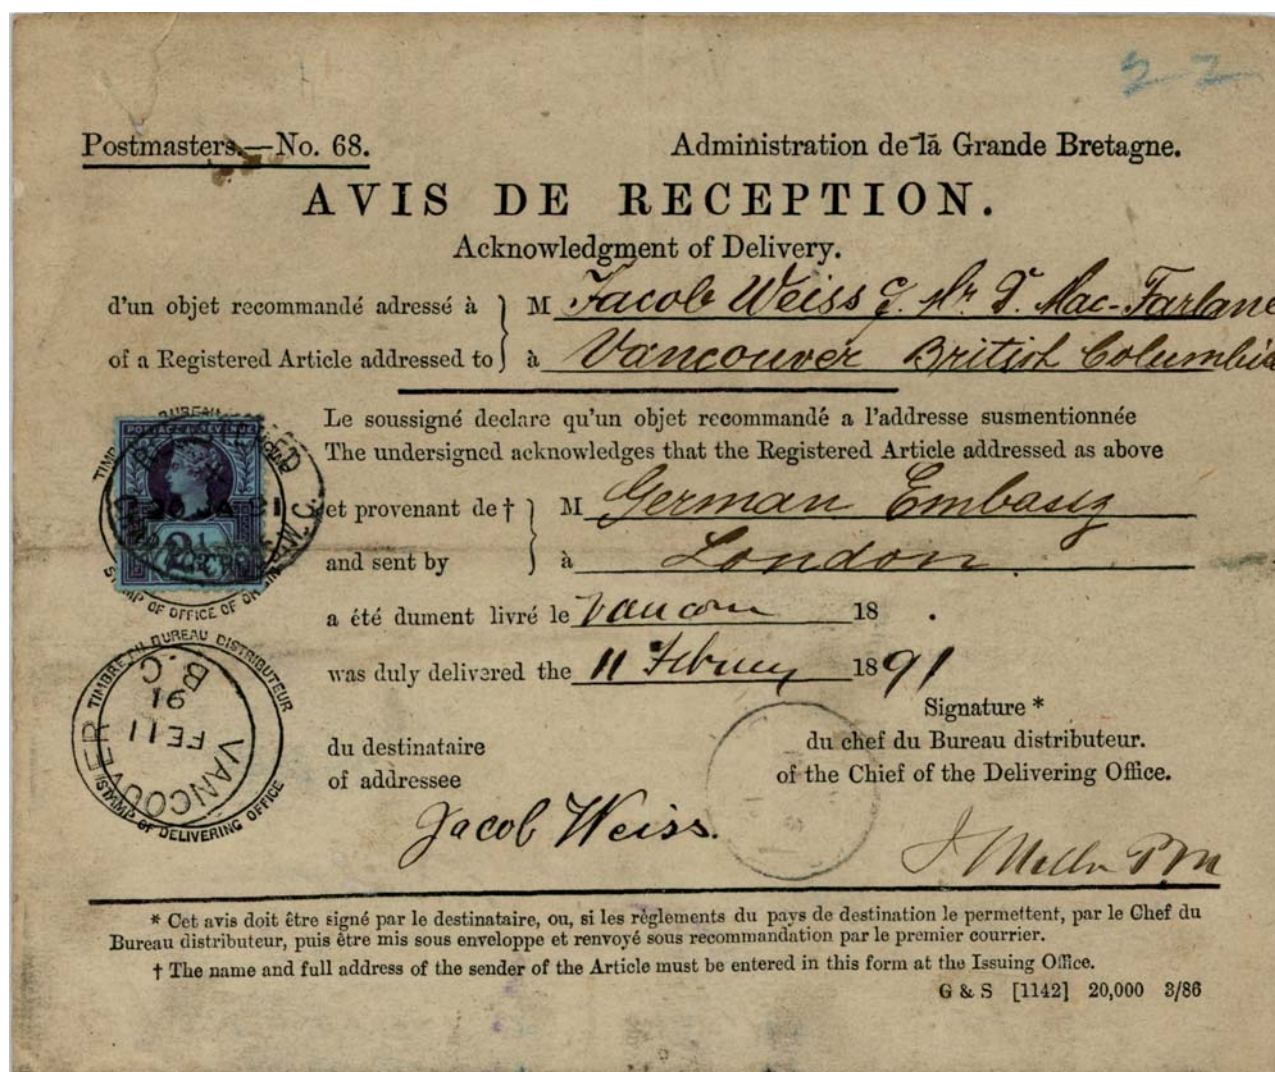 2 2
Postmasters.—No. 68.
Administration de la Grande Bretagne.
AVIS DE RECEPTION.
Acknowledgment of Delivery.
d'un objet recommandé adressé à } M Jacob Weiss c. Mr. D. Mac-Farlane
of a Registered Article addressed to } à Vancouver British Columbia
Le soussigné declare qu'un objet recommandé a l'addresse susmentionnée
The undersigned acknowledges that the Registered Article addressed as above
et provenant de † } M German Embasy
and sent by } à London.
a été dument livré le Vancou 18 .
was duly delivered the 11 February 1891
POSTAGE AND REVENUE
2½
STAMP OF OFFICE OF ORIGIN
TIMBRE DU BUREAU DISTRIBUTEUR
VANCOUVER
B.C.
FE 11
91
STAMP OF DELIVERING OFFICE
du destinataire
of addressee
Jacob Weiss.
Signature *
du chef du Bureau distributeur.
of the Chief of the Delivering Office.
P.M
* Cet avis doit être signé par le destinataire, ou, si les règlements du pays de destination le permettent, par le Chef du
Bureau distributeur, puis être mis sous enveloppe et renvoyé sous recommandation par le premier courrier.
† The name and full address of the sender of the Article must be entered in this form at the Issuing Office.
G & S [1142] 20,000 3/86